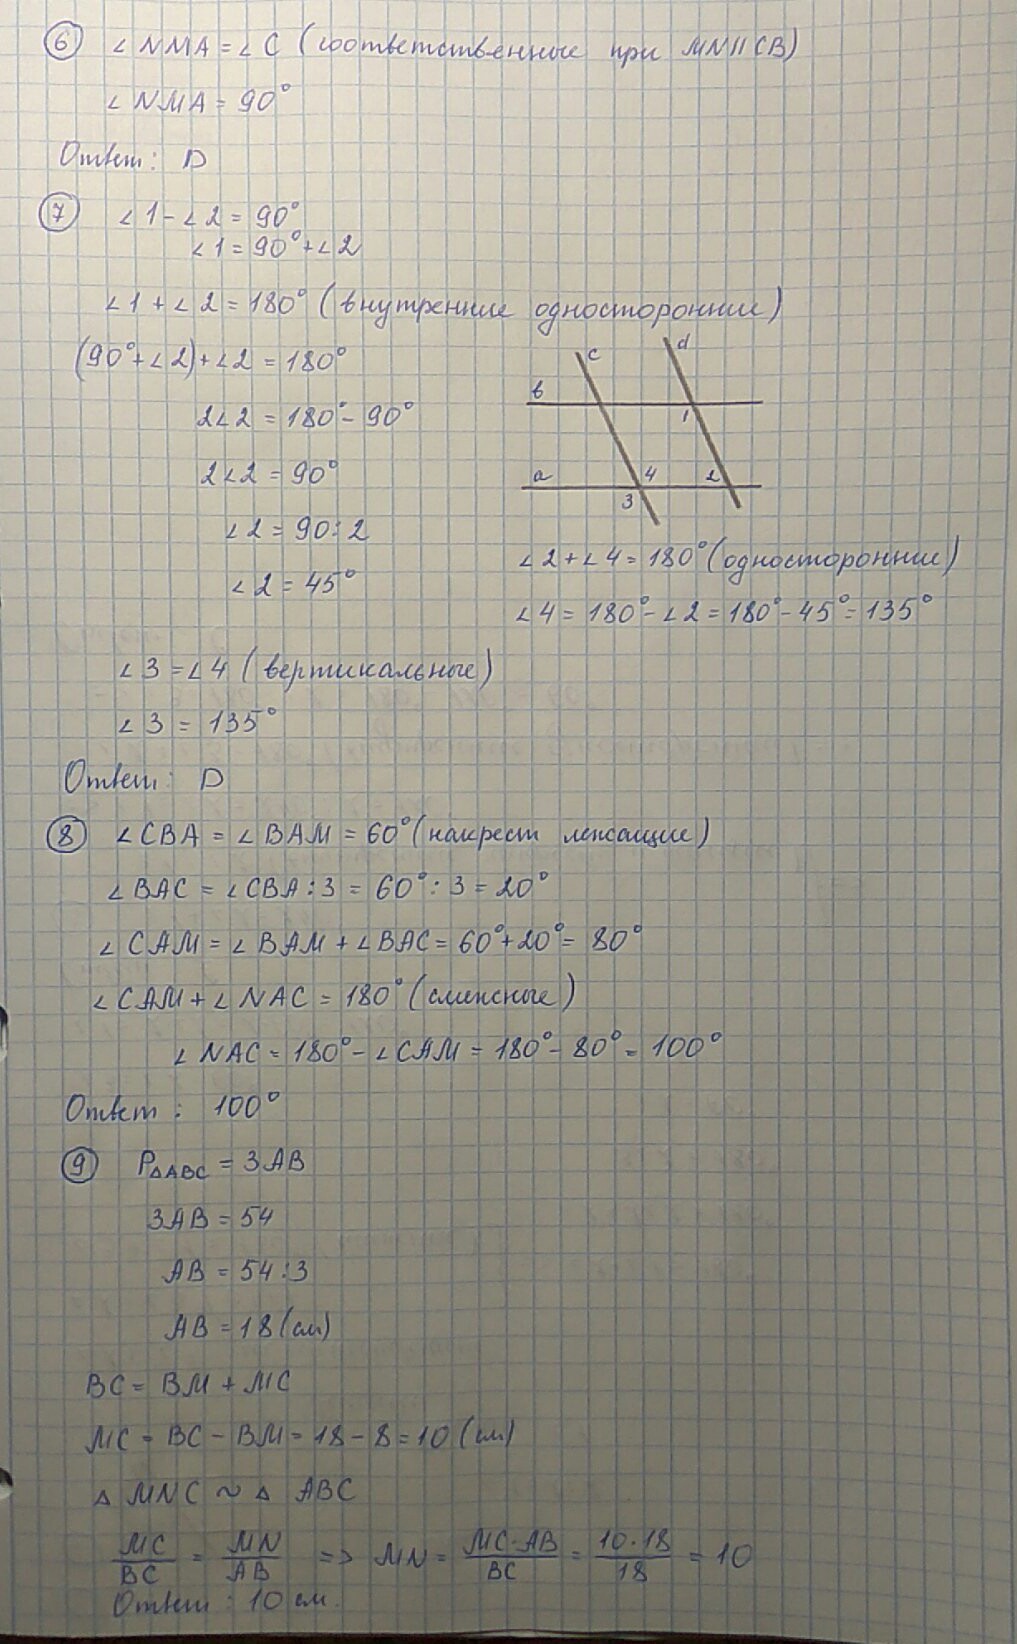 6 ∠NMA = ∠C (соответственные при MN || CB)
∠NMA = 90°
Ответ: D
7 ∠1 - ∠2 = 90°
∠1 = 90° + ∠2
∠1 + ∠2 = 180° (внутренние односторонние)
(90° + ∠2) + ∠2 = 180°
2∠2 = 180° - 90°
2∠2 = 90°
∠2 = 90 : 2
∠2 = 45°
c d
b
1
a 4 2
3
∠2 + ∠4 = 180° (односторонние)
∠4 = 180° - ∠2 = 180° - 45° = 135°
∠3 = ∠4 (вертикальные)
∠3 = 135°
Ответ: D
8 ∠CBA = ∠BAM = 60° (накрест лежащие)
∠BAC = ∠CBA : 3 = 60° : 3 = 20°
∠CAM = ∠BAM + ∠BAC = 60° + 20° = 80°
∠CAM + ∠NAC = 180° (смежные)
∠NAC = 180° - ∠CAM = 180° - 80° = 100°
Ответ: 100°
9 P△ABC = 3AB
3AB = 54
AB = 54 : 3
AB = 18 (см)
BC = BM + MC
MC = BC - BM = 18 - 8 = 10 (см)
△ MNC ~ △ ABC
MC/BC = MN/AB => MN = MC·AB/BC = 10·18/18 = 10
Ответ: 10 см.